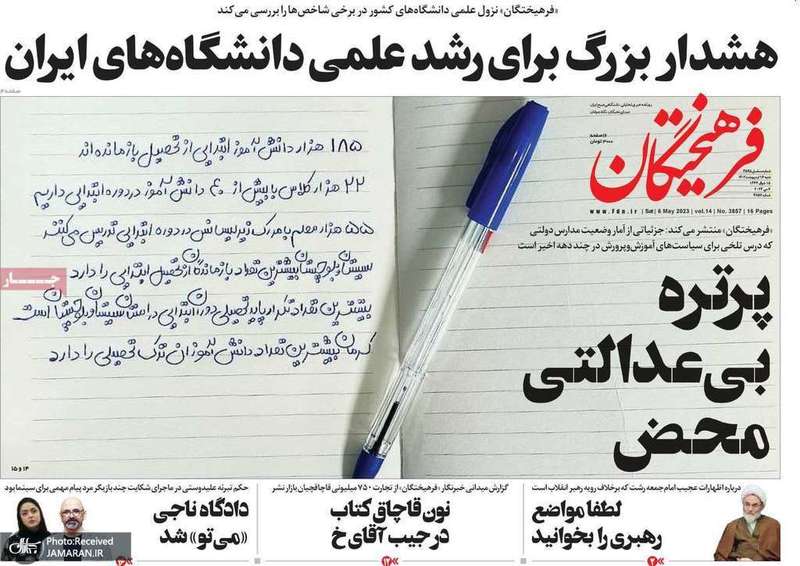 «فرهیختگان» نزول علمی دانشگاه‌های کشور در برخی شاخص‌ها را بررسی می‌کند
هشدار بزرگ برای رشد علمی دانشگاه‌های ایران
فرهیختگان
۱۶ صفحه
۳۰۰۰ تومان
www.fdn.ir | Sat | 6 May 2023 | vol.14 | No. 3857 | 16 Pages
«فرهیختگان» منتشر می‌کند: جزئیاتی از آمار وضعیت مدارس دولتی
که درس تلخی برای سیاست‌های آموزش‌وپرورش در چند دهه اخیر است
پرتره
بی‌عدالتی
محض
۱۸۵ هزار دانش آموز ابتدایی از تحصیل بازمانده‌اند
۲۲ هزار کلاس با بیش از ۴۰ دانش آموز در دوره ابتدایی داریم
۵۵ هزار معلم با مدرک زیر لیسانس در دوره ابتدایی تدریس می‌کنند
سیستان و بلوچستان بیشترین تعداد بازماندگان از تحصیل ابتدایی را دارد
بیشترین تعداد تکرار پایه تحصیلی دوره ابتدایی در استان سیستان و بلوچستان است
کرمان بیشترین تعداد دانش آموزان ترک تحصیلی را دارد
۱۴ و ۱۵
جـــار
درباره اظهارات عجیب امام جمعه رشت که برخلاف رویه رهبر انقلاب است
لطفا مواضع
رهبری را بخوانید
۲
گزارش میدانی خبرنگار «فرهیختگان» از تجارت ۷۵۰ میلیونی قاچاقچیان بازار نشر
نون قاچاق کتاب
در جیب آقای خ
۱۲
حکم تبرئه علیدوستی در ماجرای شکایت چند بازیگر مرد پیام مهمی برای سینما بود
دادگاه ناجی
«می‌تو» شد
Photo:Received
JAMARAN.IR